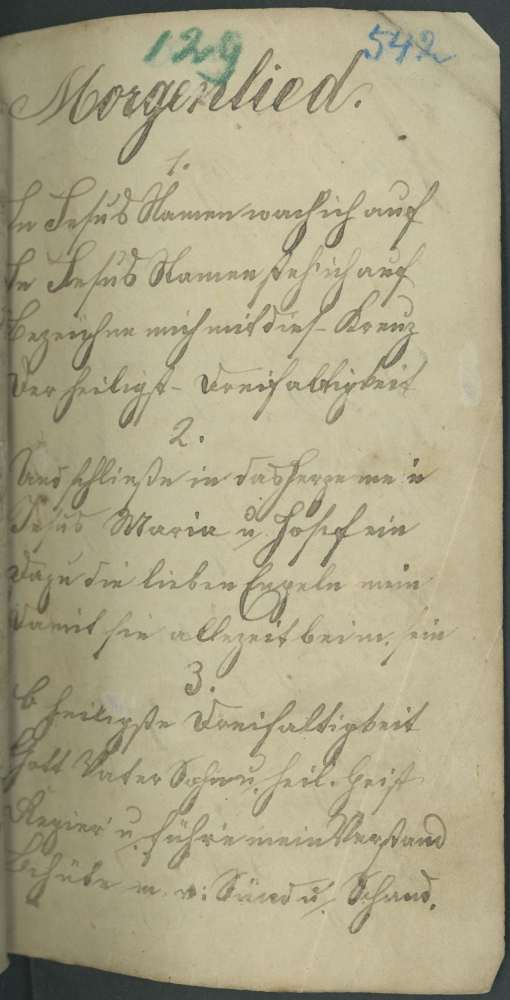 129 542
Morgenlied.
1.
In Jesus Namen wach' ich auf
In Jesus Namen steh' ich auf
Bezeichne mich mit dies- Kreuz
Der heiligst- Dreifaltigkeit
2.
Und schließe in das Herze mein
Jesus Maria u. Josef ein
Dazu die lieben Engeln mein
Damit sie allezeit bei m. sein
3.
O heiligste Dreifaltigkeit
Gott Vater Sohn u. heil. Geist
Regier' u. führe mein Verstand
Behüte m. v: Sünd u. Schand.